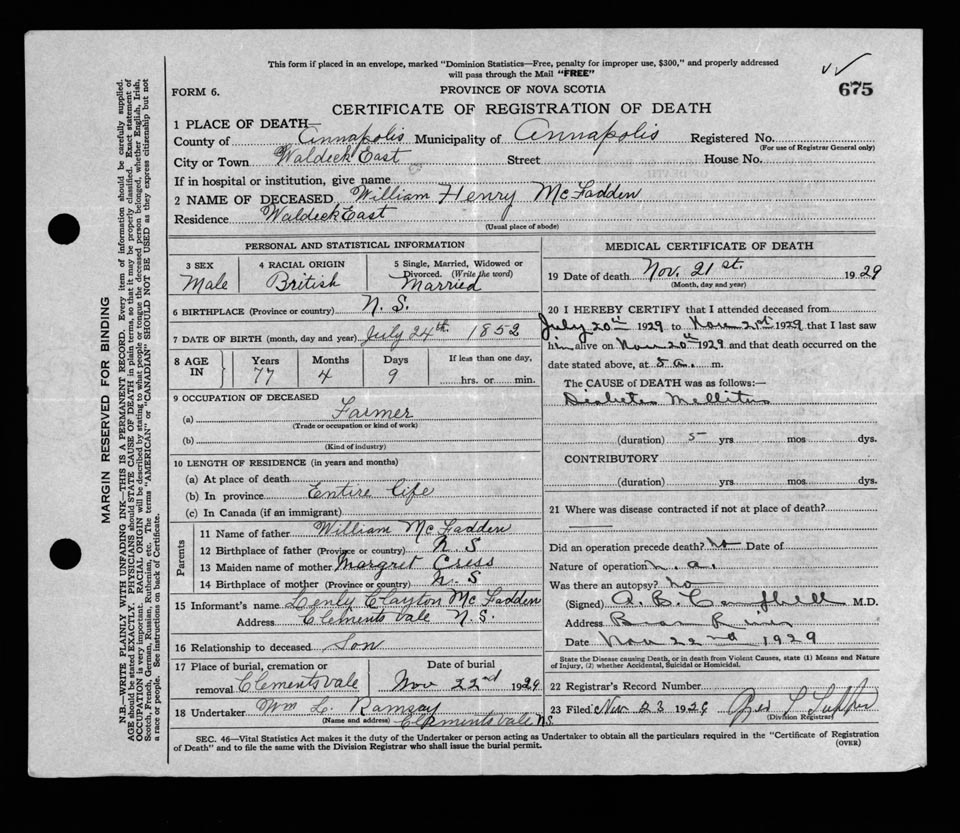 This form if placed in an envelope, marked "Dominion Statistics—Free, penalty for improper use, $300," and properly addressed
will pass through the Mail "FREE"
FORM 6.
PROVINCE OF NOVA SCOTIA
675
CERTIFICATE OF REGISTRATION OF DEATH
1 PLACE OF DEATH—
County of Annapolis Municipality of Annapolis Registered No.
(For use of Registrar General only)
City or Town Waldeck East Street House No.
If in hospital or institution, give name
2 NAME OF DECEASED William Henry McFadden
Residence Waldeck East
(Usual place of abode)
PERSONAL AND STATISTICAL INFORMATION
3 SEX Male
4 RACIAL ORIGIN British
5 Single, Married, Widowed or Divorced. (Write the word) Married
6 BIRTHPLACE (Province or country) N. S.
7 DATE OF BIRTH (month, day and year) July 24th. 1852
8 AGE IN Years 77 Months 4 Days 9 If less than one day, hrs. or min.
9 OCCUPATION OF DECEASED
(a) Farmer
(Trade or occupation or kind of work)
(b)
(Kind of industry)
10 LENGTH OF RESIDENCE (in years and months)
(a) At place of death
(b) In province Entire life
(c) In Canada (if an immigrant)
Parents
11 Name of father William McFadden
12 Birthplace of father (Province or country) N. S
13 Maiden name of mother Margret Cress
14 Birthplace of mother (Province or country) N. S
15 Informant's name Clayton McFadden
Address Clements vale N. S.
16 Relationship to deceased Son
17 Place of burial, cremation or removal Clementsvale
Date of burial Nov 22nd 1929
18 Undertaker Wm L. Ramsay
(Name and address) Clementsvale N.S.
MEDICAL CERTIFICATE OF DEATH
19 Date of death Nov. 21st. 1929
(Month, day and year)
20 I HEREBY CERTIFY that I attended deceased from
July 20th 1929 to Nov 21st 1929 that I last saw
him alive on Nov 20th 1929 and that death occurred on the
date stated above, at 5 a. m.
The CAUSE of DEATH was as follows:—
Diabetes Mellitus
(duration) 5 yrs mos dys.
CONTRIBUTORY
(duration) yrs. mos. dys.
21 Where was disease contracted if not at place of death?
Did an operation precede death? no Date of
Nature of operation n. a.
Was there an autopsy? no
(Signed) A. B. Campbell M.D.
Address Bear River
Date Nov 22nd 1929
State the Disease causing Death, or in death from Violent Causes, state (1) Means and Nature
of Injury, (2) whether Accidental, Suicidal or Homicidal.
22 Registrar's Record Number
23 Filed Nov 23 1929
(Division Registrar)
SEC. 46—Vital Statistics Act makes it the duty of the Undertaker or person acting as Undertaker to obtain all the particulars required in the "Certificate of Registration
of Death" and to file the same with the Division Registrar who shall issue the burial permit.
(OVER)
MARGIN RESERVED FOR BINDING
N.B.—WRITE PLAINLY WITH UNFADING INK—THIS IS A PERMANENT RECORD. Every item of information should be carefully supplied.
AGE should be stated EXACTLY. PHYSICIANS should STATE CAUSE OF DEATH in plain terms, so that it may be properly classified. Exact statement of
OCCUPATION is very important. RACIAL ORIGIN will be described by stating to what people or tongue the deceased person belonged, whether English, Irish,
Scotch, French, German, Russian, Ruthenian, etc. The terms "AMERICAN" or "CANADIAN" SHOULD NOT BE USED as they express citizenship but not
a race or people. See instructions on back of Certificate.